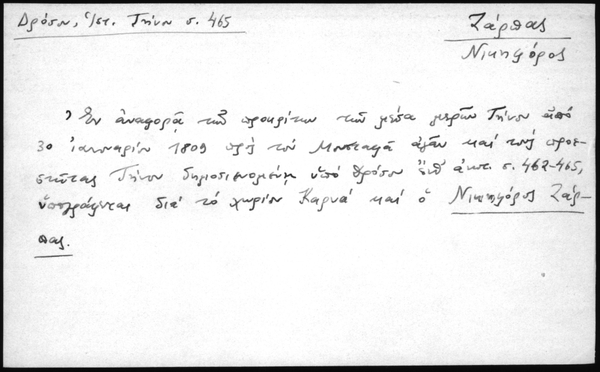 Δρόσου, Ἱστ. Τήνου σ. 465
Ζάρπας
Νικηφόρος
Ἐν ἀναφορᾷ τῶν προκρίτων τῶν μέσα μερῶν Τήνου ἀπό
30 ἰανουαρίου 1809 πρὸς τὸν Μουσταφᾶ ἀγᾶν καὶ τοὺς προε-
στῶτας Τήνου δημοσιευομένῃ ὑπό Δρόσου ἔνθ' ἀνωτ. σ. 462-465,
ὑπογράφεται διά τό χωρίον Καρυά καί ὁ Νικηφόρος Ζάρ-
πας.